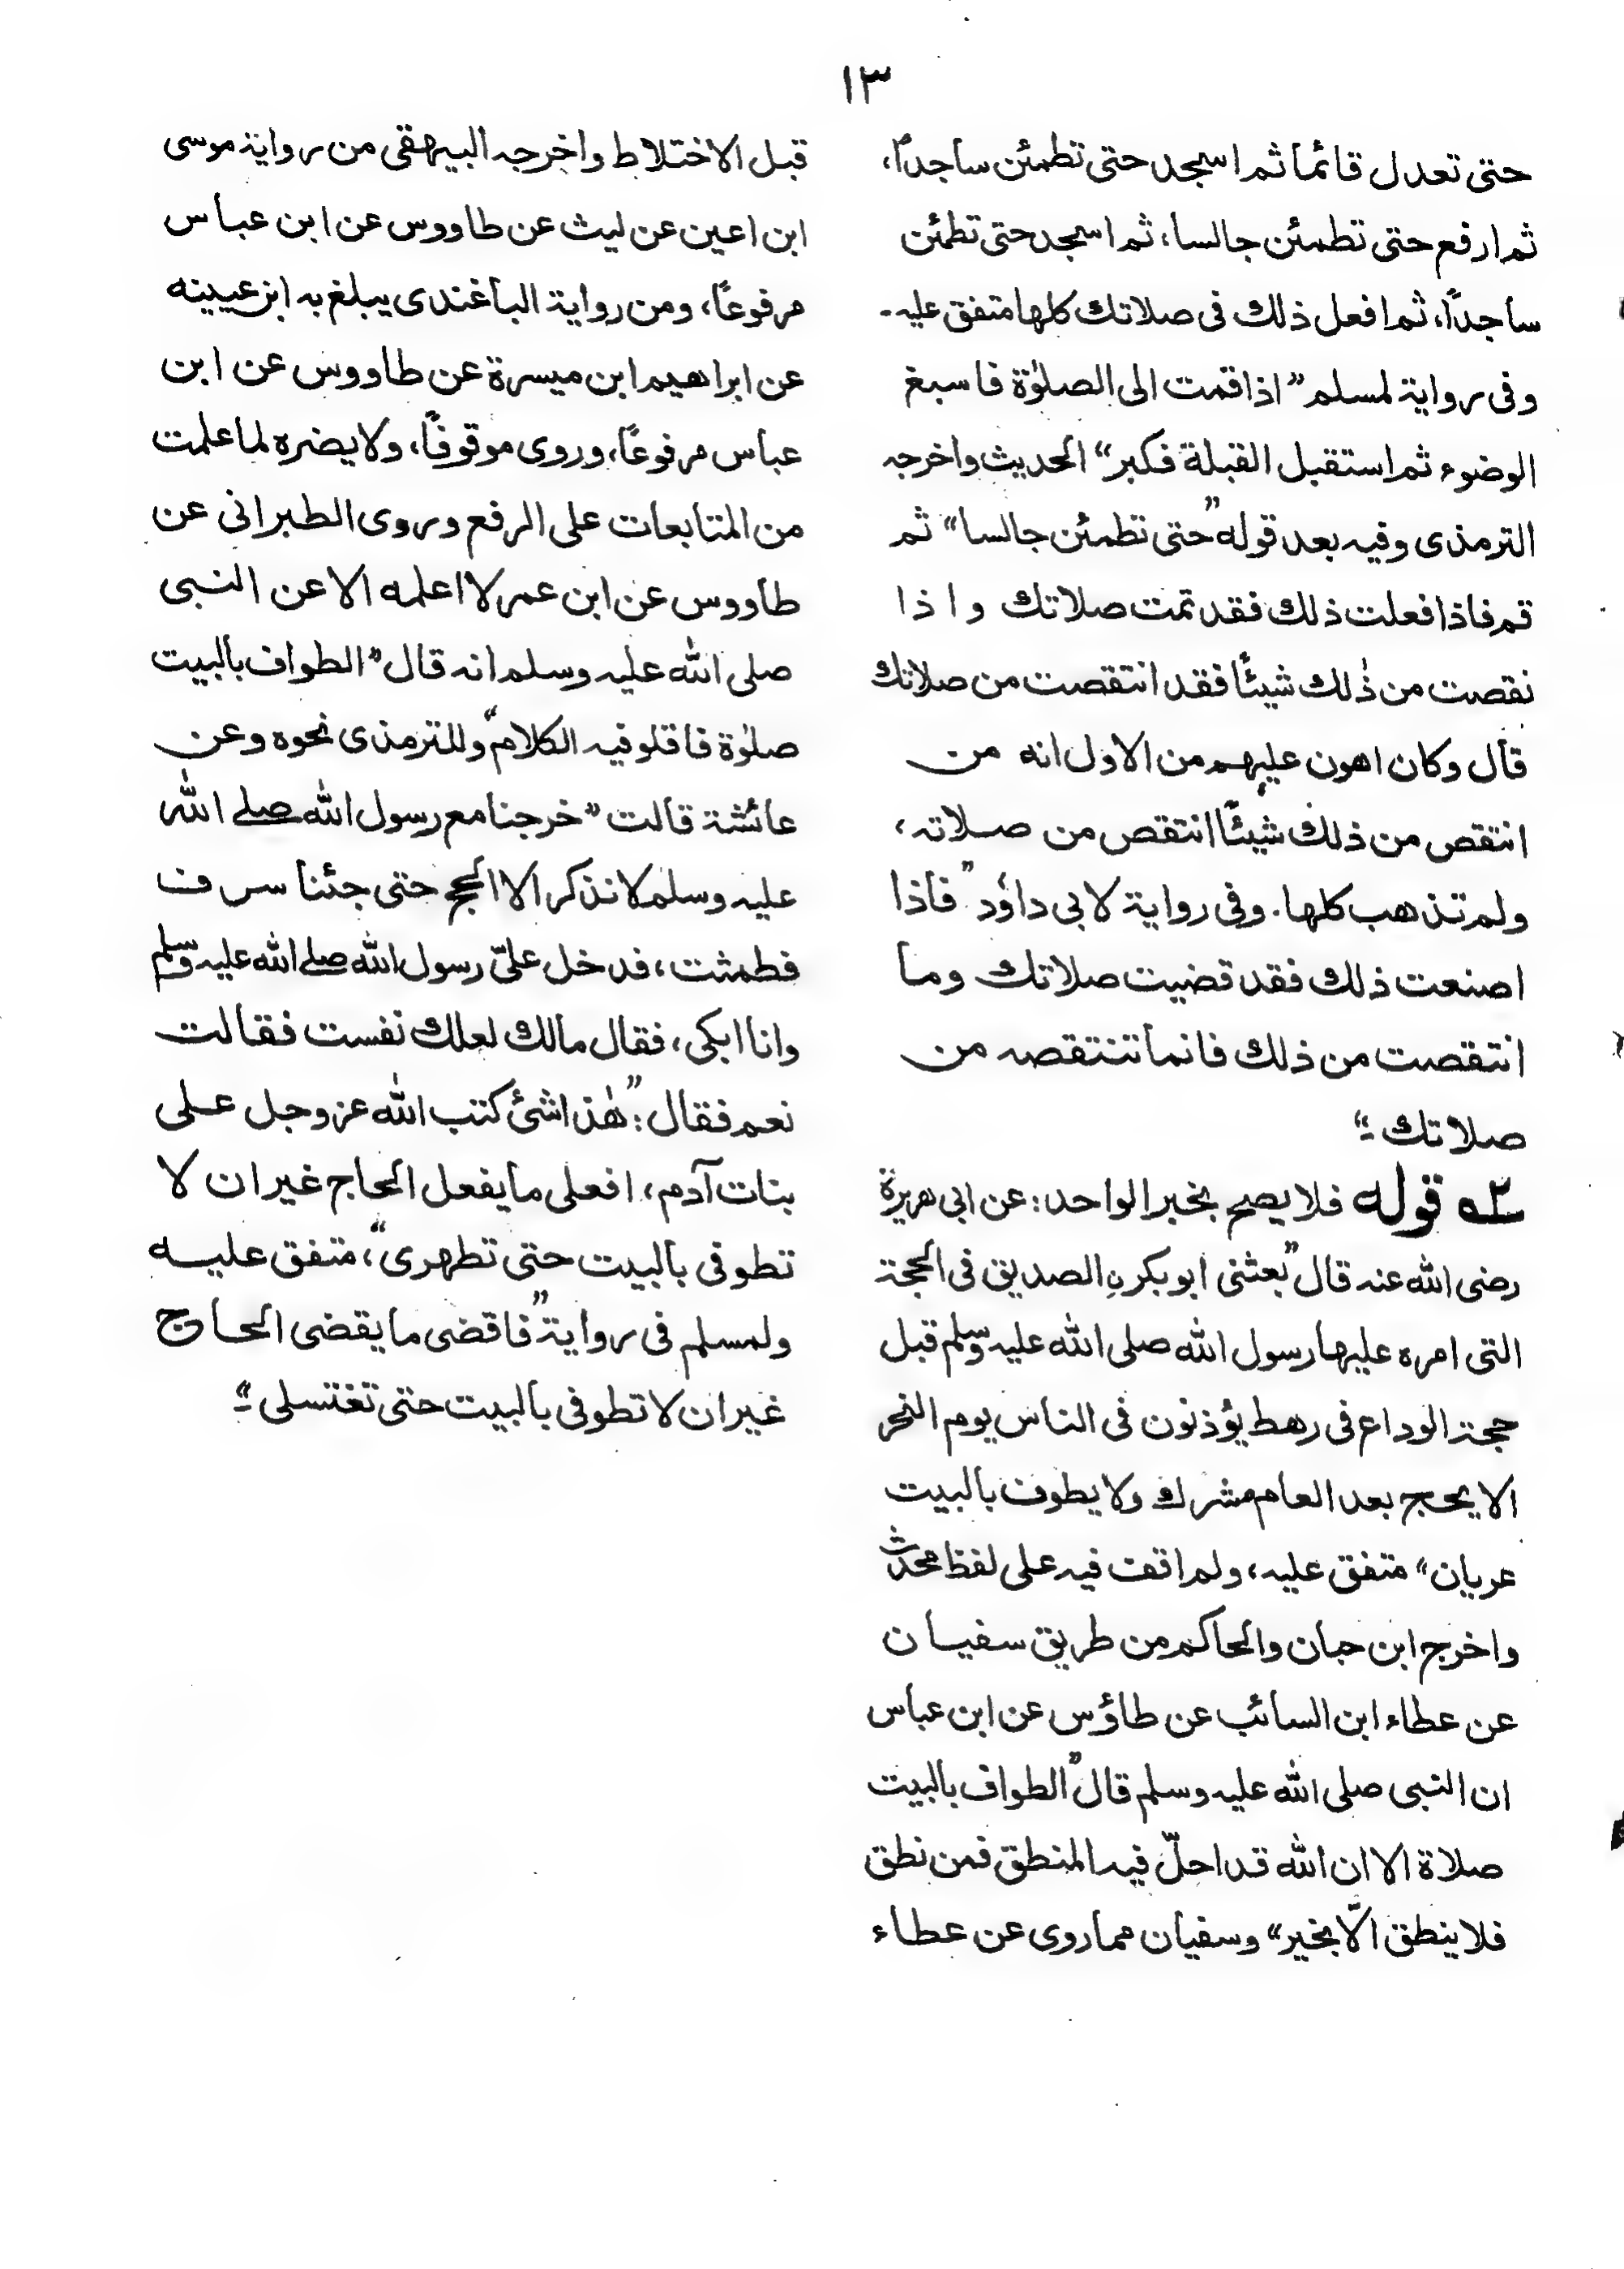 ١٣
حتى تعدل قائما ثم اسجد حتى تطمئن ساجداً،
ثم ارفع حتى تطمئن جالسا، ثم اسجد حتى تطمئن
ساجداً، ثم افعل ذلك فى صلاتك كلها متفق عليه۔
وفى رواية لمسلم ”اذا قمت الى الصلوٰة فاسبغ
الوضوء ثم استقبل القبلة فكبر“ الحديث واخرجه
الترمذى وفيه بعد قوله ”حتى تطمئن جالسا“ ثم
قم فاذا فعلت ذلك فقد تمت صلاتك واذا
نقصت من ذٰلك شيئًا فقد انتقصت من صلاتك
قال وكان اهون عليهم من الاول انه من
انتقص من ذلك شيئًا انتقص من صلاته،
ولم تذهب كلها. وفى رواية لابى داوٗد ”فاذا
اصنعت ذلك فقد قضيت صلاتك وما
انتقصت من ذلك فانما تنتقصه من
صلاتك“۔
٢ قوله فلا يصح بخبر الواحد: عن ابى هريرة
رضى الله عنه قال ”بعثنى ابو بكرنِ الصديق فى الحجة
التى امره عليها رسول الله صلى الله عليه وسلم قبل
حجة الوداع فى رهط يؤذنون فى الناس يوم النحر
الا يحج بعد العام مشرك ولا يطوف بالبيت
عريان“ متفق عليه، ولم اقف فيه على لفظ محدث
واخرج ابن حبان والحاكم من طريق سفيان
عن عطاء ابن السائب عن طاؤس عن ابن عباس
ان النبى صلى الله عليه وسلم قال ”الطواف بالبيت
صلاة الا ان الله قد احلّ فيه المنطق فمن نطق
فلا ينطق الّا بخير“ وسفيان مما روى عن عطاء
قبل الاختلاط واخرجه البيهقى من رواية موسى
ابن اعين عن ليث عن طاووس عن ابن عباس
مرفوعاً، ومن رواية الباغندى يبلغ به ابن عيينه
عن ابراهيم ابن ميسرة عن طاووس عن ابن
عباس مرفوعًا، وروى موقوفاً، ولا يضره لما علمت
من المتابعات على الرفع وروى الطبرانى عن
طاووس عن ابن عمر لا اعلمه الا عن النبى
صلى الله عليه وسلم انه قال ”الطواف بالبيت
صلوٰة فاقلو فيه الكلام“ وللترمذى نحوه وعن
عائشة قالت ”خرجنا مع رسول الله صلى الله
عليه وسلم لا نذكر الا الحج حتى جئنا سرف
فطمثت، فدخل علىّ رسول الله صلى الله عليه وسلم
وانا ابكى، فقال مالك لعلك نفست فقالت
نعم فقال: ”هٰذا شئ كتب الله عز وجل على
بنات آدم، افعلى ما يفعل الحاج غير ان لا
تطوفى بالبيت حتى تطهرى“، متفق عليه
ولمسلم فى رواية ”فاقضى ما يقضى الحاج
غير ان لا تطوفى بالبيت حتى تغتسلى“۔